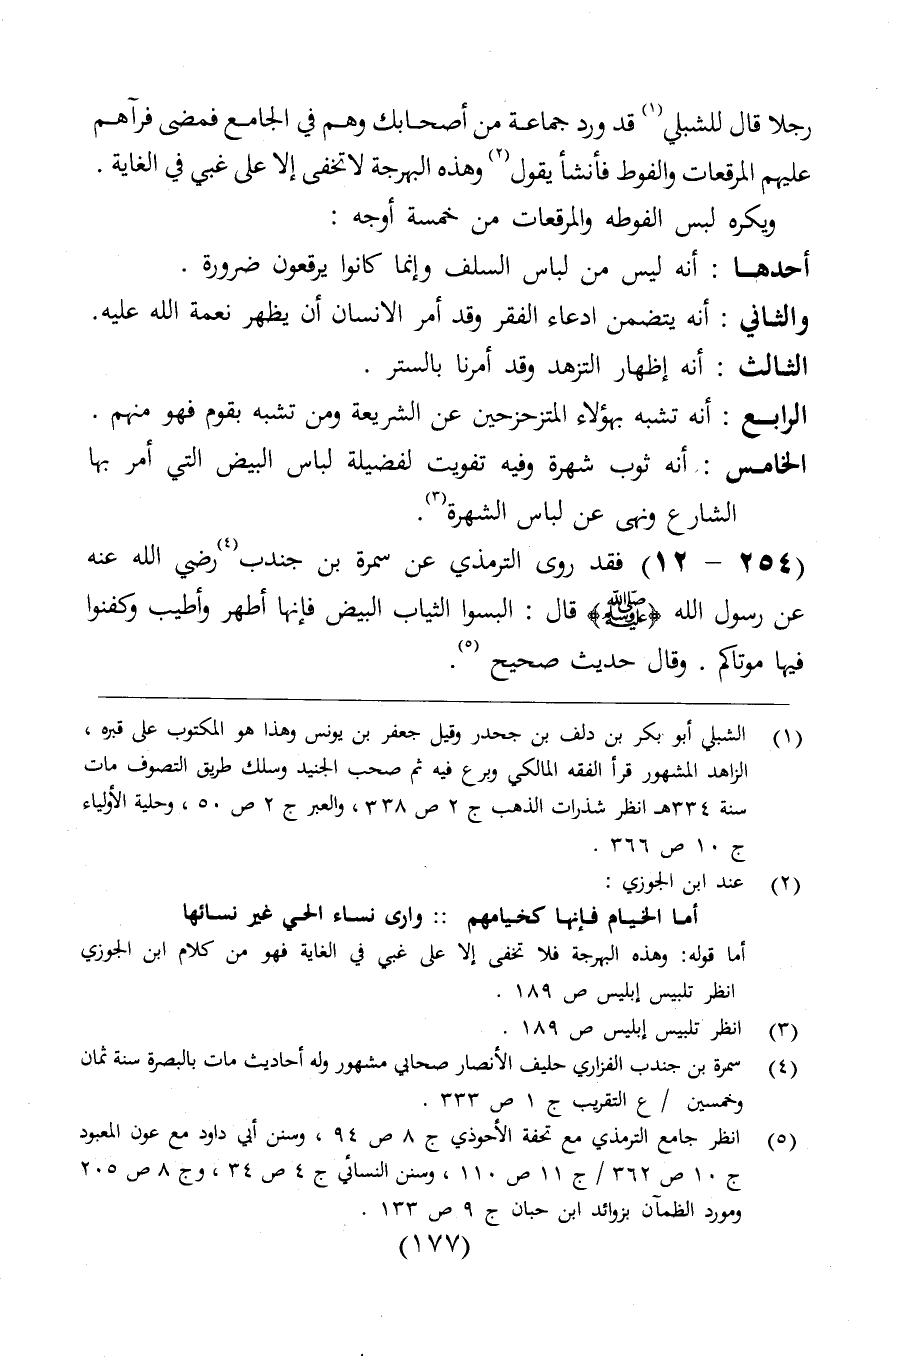 رجلا قال للشبلي(١) قد ورد جماعة من أصحابك وهم في الجامع فمضى فرآهم
عليهم المرقعات والفوط فأنشأ يقول(٢) وهذه البهرجة لاتخفى إلا على غبي في الغاية .
ويكره لبس الفوطه والمرقعات من خمسة أوجه :
أحدهـا : أنه ليس من لباس السلف وإنما كانوا يرقعون ضرورة .
والثاني : أنه يتضمن ادعاء الفقر وقد أمر الانسان أن يظهر نعمة الله عليه.
الثالث : أنه إظهار التزهد وقد أمرنا بالستر .
الرابـع : أنه تشبه بهؤلاء المتزحزحين عن الشريعة ومن تشبه بقوم فهو منهم .
الخامـس : أنه ثوب شهرة وفيه تفويت لفضيلة لباس البيض التي أمر بها
الشارع ونهى عن لباس الشهرة(٣).
(٢٥٤ – ١٢) فقد روى الترمذي عن سمرة بن جندب(٤) رضي الله عنه
عن رسول الله ﴿ﷺ﴾ قال : البسوا الثياب البيض فإنها أطهر وأطيب وكفنوا
فيها موتاكم . وقال حديث صحيح (٥).
(١) الشبلي أبو بكر بن دلف بن جحدر وقيل جعفر بن يونس وهذا هو المكتوب على قبره ،
الزاهد المشهور قرأ الفقه المالكي وبرع فيه ثم صحب الجنيد وسلك طريق التصوف مات
سنة ٣٣٤هـ انظر شذرات الذهب ج ٢ ص ٣٣٨ ، والعبر ج ٢ ص ٥٠ ، وحلية الأولياء
ج ١٠ ص ٣٦٦ .
(٢) عند ابن الجوزي :
أمـا الخيـام فـإنهـا كخيامهم :: وارى نساء الحـي غير نسـائها
أما قوله: وهذه البهرجة فلا تخفى إلا على غبي في الغاية فهو من كلام ابن الجوزي
انظر تلبيس إبليس ص ١٨٩ .
(٣) انظر تلبيس إبليس ص ١٨٩ .
(٤) سمرة بن جندب الفزاري حليف الأنصار صحابي مشهور وله أحاديث مات بالبصرة سنة ثمان
وخمسين / ع التقريب ج ١ ص ٣٣٣ .
(٥) انظر جامع الترمذي مع تحفة الأحوذي ج ٨ ص ٩٤ ، وسنن أبي داود مع عون المعبود
ج ١٠ ص ٣٦٢ / ج ١١ ص ١١٠ ، وسنن النسائي ج ٤ ص ٣٤ ، وج ٨ ص ٢٠٥
ومورد الظمآن بزوائد ابن حبان ج ٩ ص ١٣٣ .
(١٧٧)